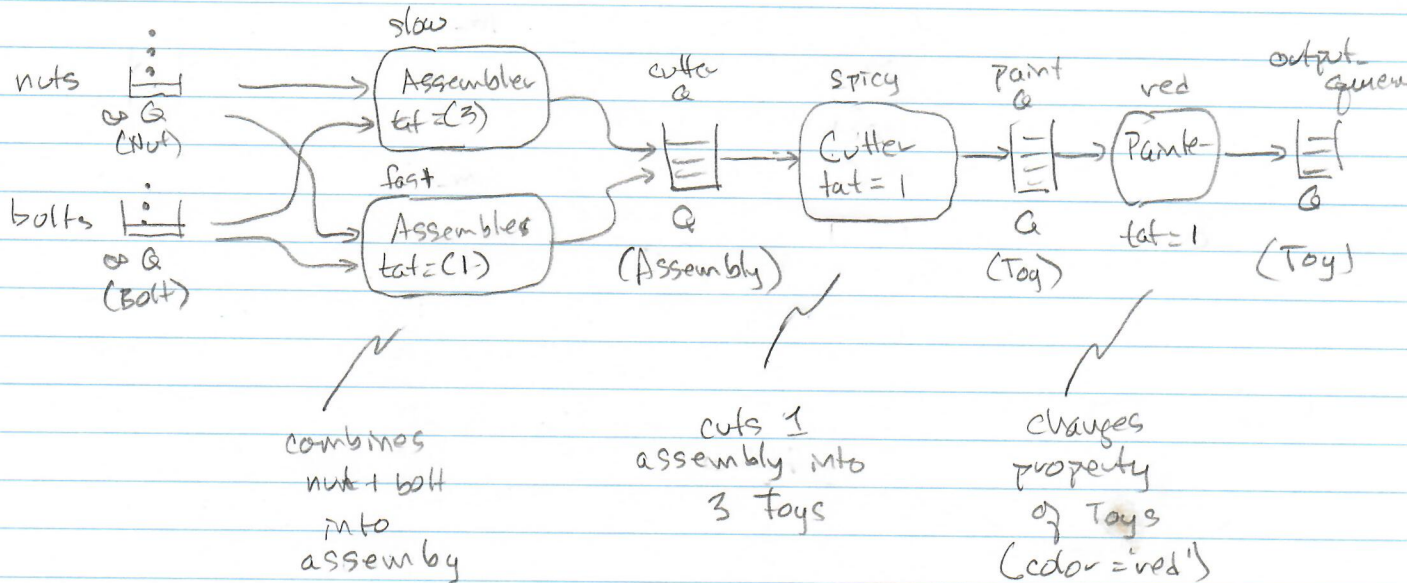 nuts
∞ Q
(Nut)
bolts
∞ Q
(Bolt)
slow
Assembler
tat=(3)
fast
Assembler
tat=(1)
cutter
Q
Q
(Assembly)
spicy
Cutter
tat=1
paint
Q
Q
(Toy)
red
Painte
tat=1
output_
queue
Q
(Toy)
combines
nut + bolt
into
assemby
cuts 1
assembly into
3 Toys
changes
property
of Toys
(color='red')